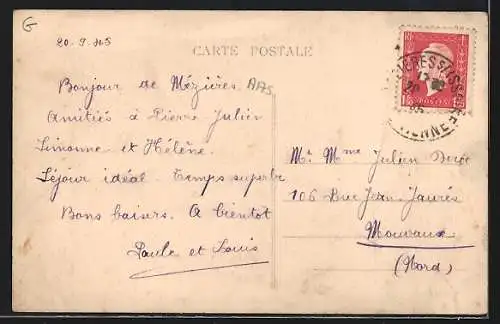 G
20-9-45
CARTE POSTALE
Bonjour de Mézières.
Amitiés à Pierre Julien
Simonne et Hélène.
Séjour idéal. Temps superbe
Bons baisers. A bientot
Paule et Louis
Mr Mme Julien
106 Rue Jean Jaurès
Mouvaux
(Nord)